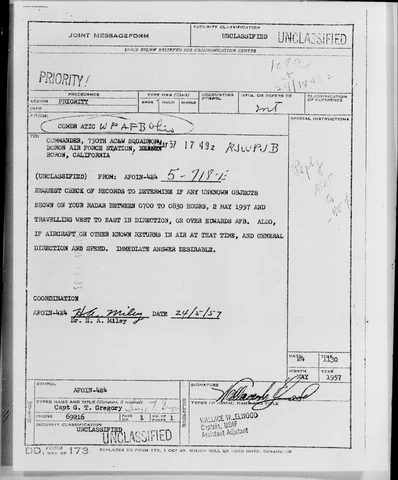 JOINT MESSAGEFORM
SECURITY CLASSIFICATION
UNCLASSIFIED
UNCLASSIFIED
SPACE BELOW RESERVED FOR COMMUNICATION CENTER
PRIORITY!
PRECEDENCE
TYPE MSG (Check)
ACCOUNTING SYMBOL
ORIG. OR REFERS TO
CLASSIFICATION OF REFERENCE
ACTION PRIORITY
BOOK MULTI SINGLE
FROM:
SPECIAL INSTRUCTIONS
COMDR ATIC WPAFB Ohio
TO:
COMMANDER, 750TH AC&W SQUADRON
BORON AIR FORCE STATION,
BORON, CALIFORNIA
57 17 49z
RJWPJB
Reply
(UNCLASSIFIED) FROM: AFOIN-4E4 5-718-E
REQUEST CHECK OF RECORDS TO DETERMINE IF ANY UNKNOWN OBJECTS
SHOWN ON YOUR RADAR BETWEEN 0700 TO 0830 HOURS, 2 MAY 1957 AND
TRAVELLING WEST TO EAST IN DIRECTION, OR OVER EDWARDS AFB. ALSO,
IF AIRCRAFT OR OTHER KNOWN RETURNS IN AIR AT THAT TIME, AND GENERAL
DIRECTION AND SPEED. IMMEDIATE ANSWER DESIRABLE.
COORDINATION
AFOIN-4E4 H.A. Miley DATE 24/5/57
Mr. H. A. Miley
DATE 24 TIME 1130
MONTH MAY YEAR 1957
SYMBOL
AFOIN-4E4
SIGNATURE
TYPED NAME AND TITLE (Signature, if required)
Capt G. T. Gregory
TYPED (or stamped) NAME AND TITLE
PHONE 69216
PAGE NR. 1 NO. OF PAGES 1
WALLACE W. ELWOOD
Captain, USAF
Assistant Adjutant
SECURITY CLASSIFICATION
UNCLASSIFIED
UNCLASSIFIED
DD FORM 173
REPLACES DD FORM 173, 1 OCT 49, WHICH WILL BE USED UNTIL EXHAUSTED